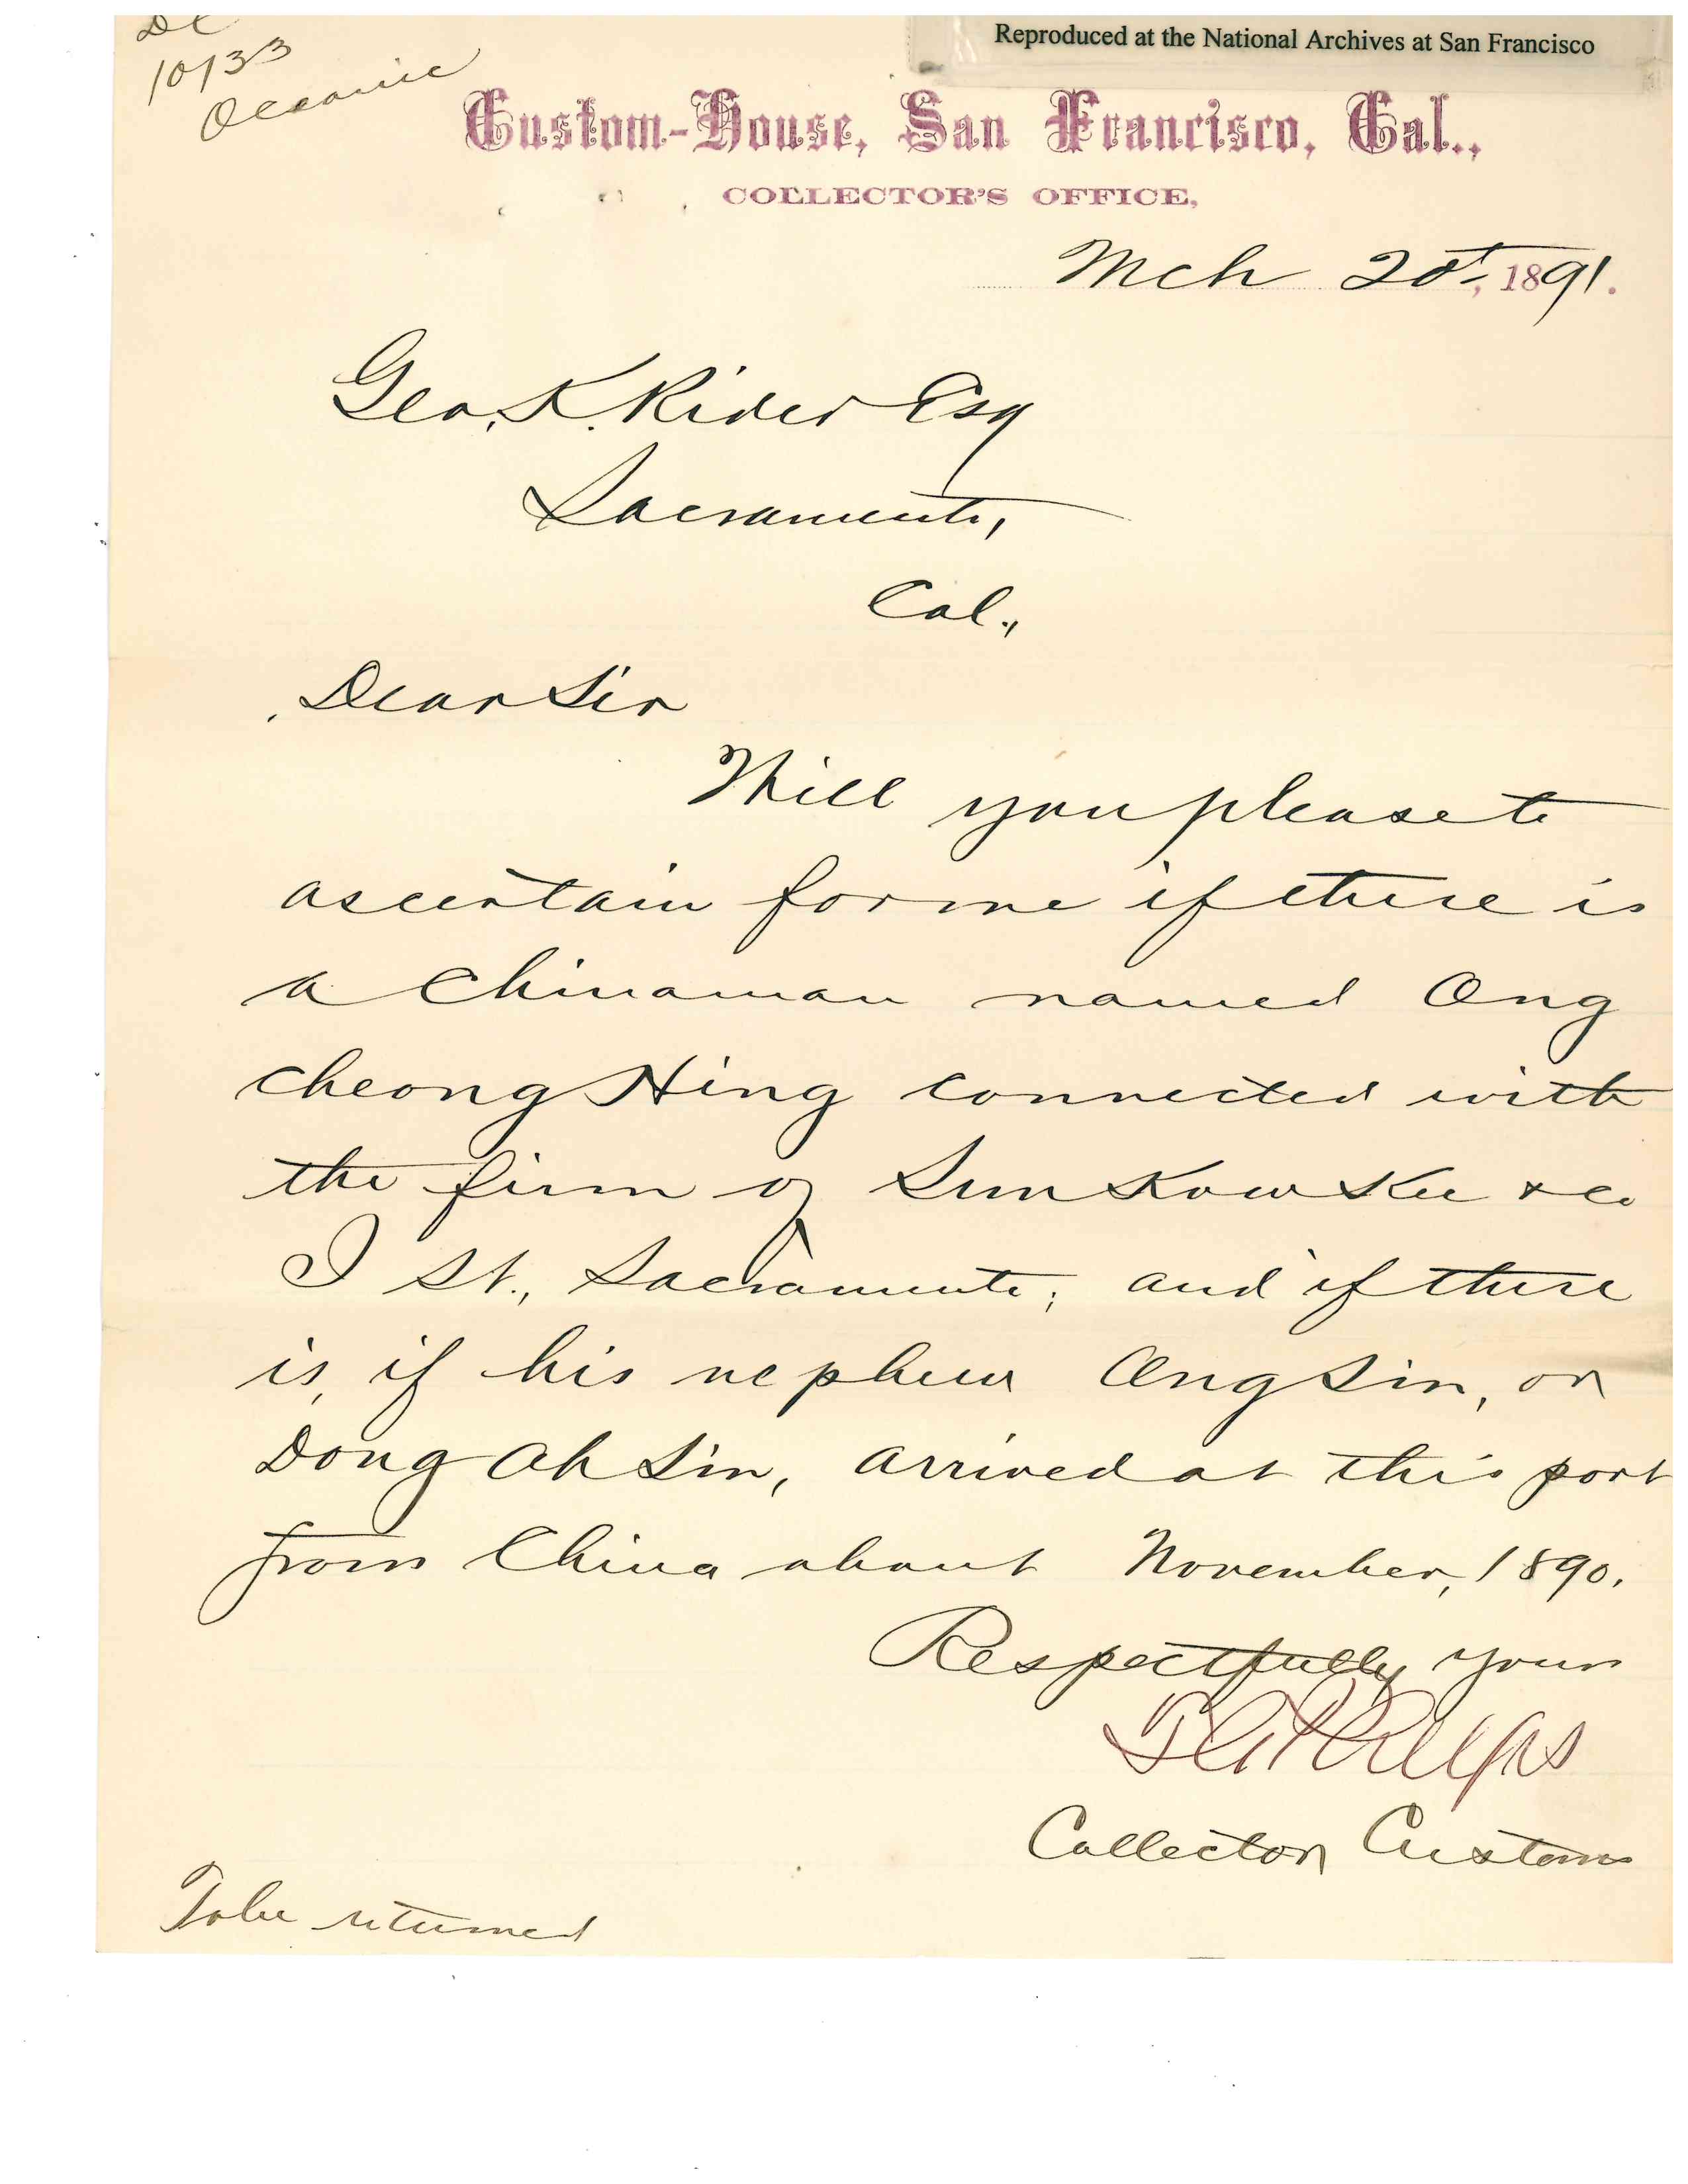 Reproduced at the National Archives at San Francisco
10133
Oceanic
Custom-House, San Francisco, Cal.,
COLLECTOR'S OFFICE,
Mch 20th, 1891.
Geo. K. Rider Esq
Sacramento,
Cal.,
Dear Sir
Will you please to
ascertain for me if there is
a Chinaman named Ong
Cheong Hing connected with
the firm of Sun Kow Kee & Co
I St., Sacramento; and if there
is, if his nephew Ong Sin, or
Dong Ah Sin, arrived at this port
from China about November, 1890.
Respectfully yours
Phelps
Collector Customs
To be returned